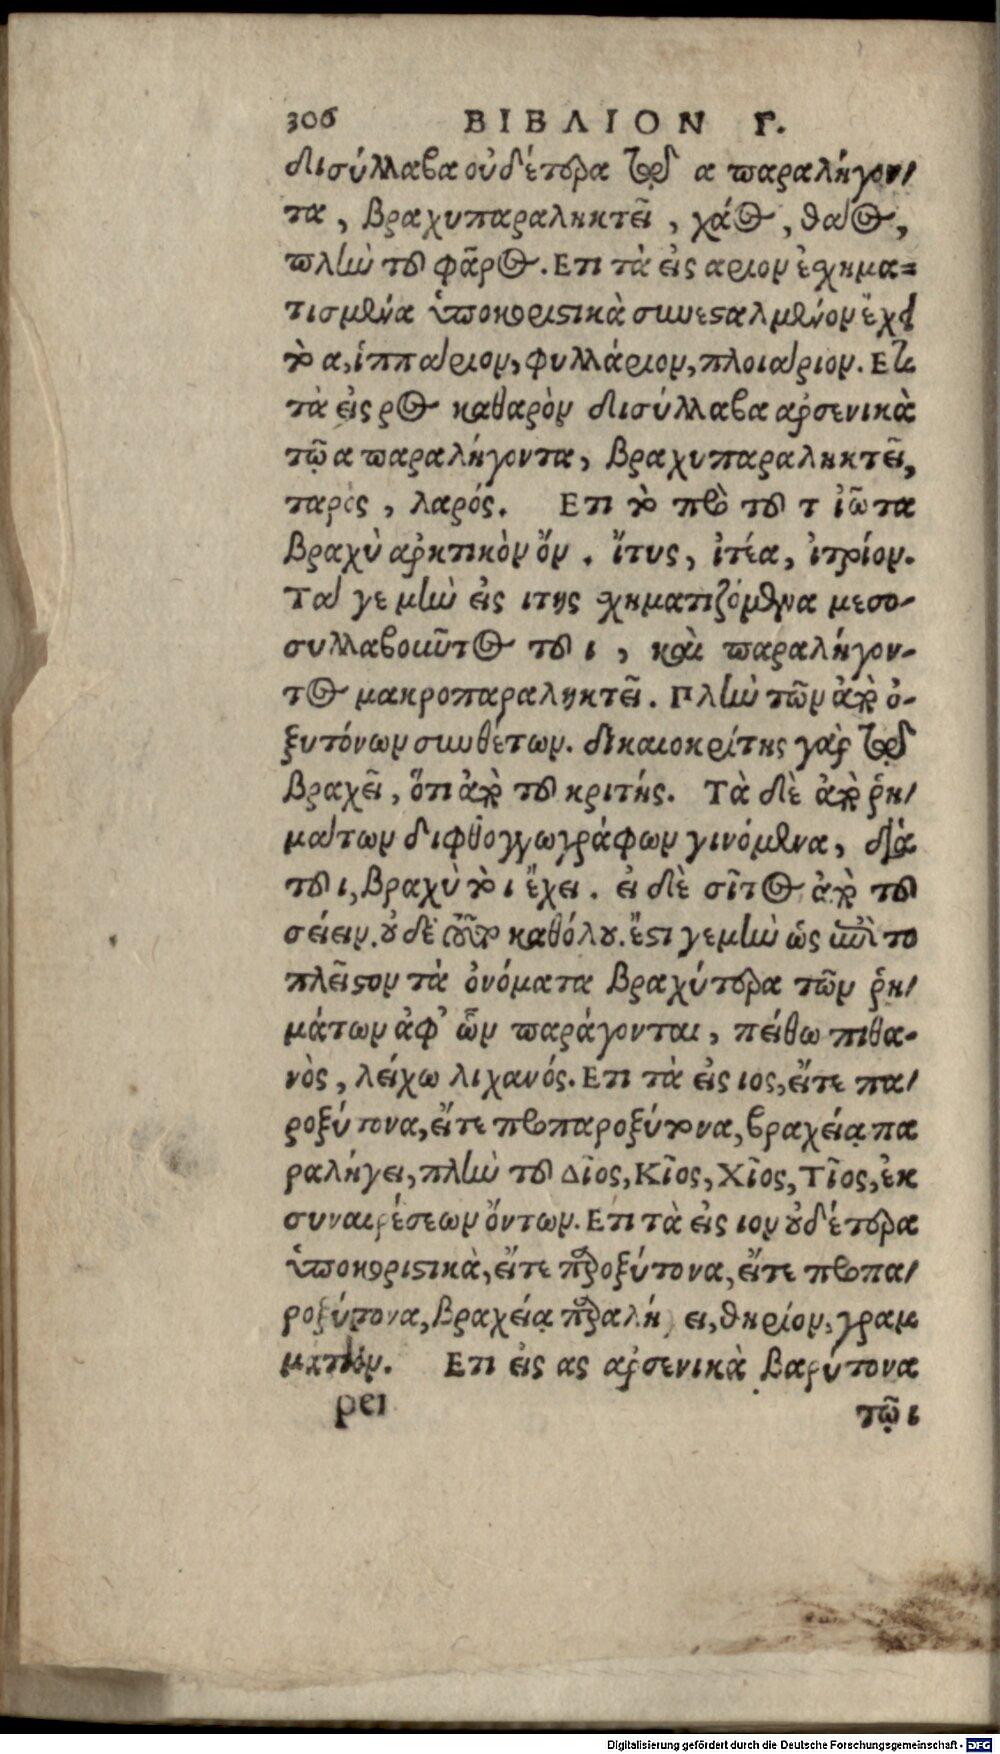 306 ΒΙΒΛΙΟΝ Γ.
δισύλλαβα οὐδέτερα τῷ α παραλήγον/
τα, βραχυπαραληκτεῖ, χάος, θάος,
πλὴν τοῦ φᾶρος. Ετι τὰ εἰς αριον ἐσχημα=
τισμένα ὑποκοριστικὰ συνεσταλμένον ἔχει
τὸ α, ἱππάριον, φυλλάριον, πλοιάριον. Ετι
τὰ εἰς ρος καθαρὸν δισύλλαβα ἀρσενικὰ
τῷ α παραλήγοντα, βραχυπαραληκτεῖ,
ταρὸς, λαρός. Ετι τὸ πρὸ τοῦ τ ἰῶτα
βραχὺ ἀρκτικὸν ὄν. ἴτυς, ἰτέα, ἰτρίον.
Τά γε μὴν εἰς ιτης σχηματιζόμενα μεσο-
συλλαβοῦντος τοῦ ι, καὶ παραλήγον-
τος μακροπαραληκτεῖ. Πλὴν τῶν ἀπὸ ὀ-
ξυτόνων συνθέτων. δικαιοκρίτης γὰρ τῷ
βραχεῖ, ὅτι ἀπὸ τοῦ κριτής. Τὰ δὲ ἀπὸ ῥη/
μάτων διφθογγωγράφων γινόμενα, διὰ
τοῦ ι, βραχὺ τὸ ι ἔχει. εἰ δὲ σῖτος ἀπὸ τοῦ
σείειν. οὐδὲ τοῦτο καθόλου. ἔστι γε μὴν ὡς ἐπὶ το
πλεῖστον τὰ ὀνόματα βραχύτερα τῶν ῥη/
μάτων ἀφ' ὧν παράγονται, πείθω πιθα-
νὸς, λείχω λιχανός. Ετι τὰ εἰς ιος, εἴτε πα/
ροξύτονα, εἴτε προπαροξύτονα, βραχείᾳ πα
ραλήγει, πλὴν τοῦ Δῖος, Κῖος, Χῖος, Τῖος, ἐκ
συναιρέσεων ὄντων. Ετι τὰ εἰς ιον οὐδέτερα
ὑποκοριστικὰ, εἴτε παροξύτονα, εἴτε προπα/
ροξύτονα, βραχείᾳ παραλήγει, θηρίον, γραμ
μάτιον. Ετι εἰς ας ἀρσενικὰ βαρύτονα
ρει τῷ ι
Digitalisierung gefördert durch die Deutsche Forschungsgemeinschaft - DFG